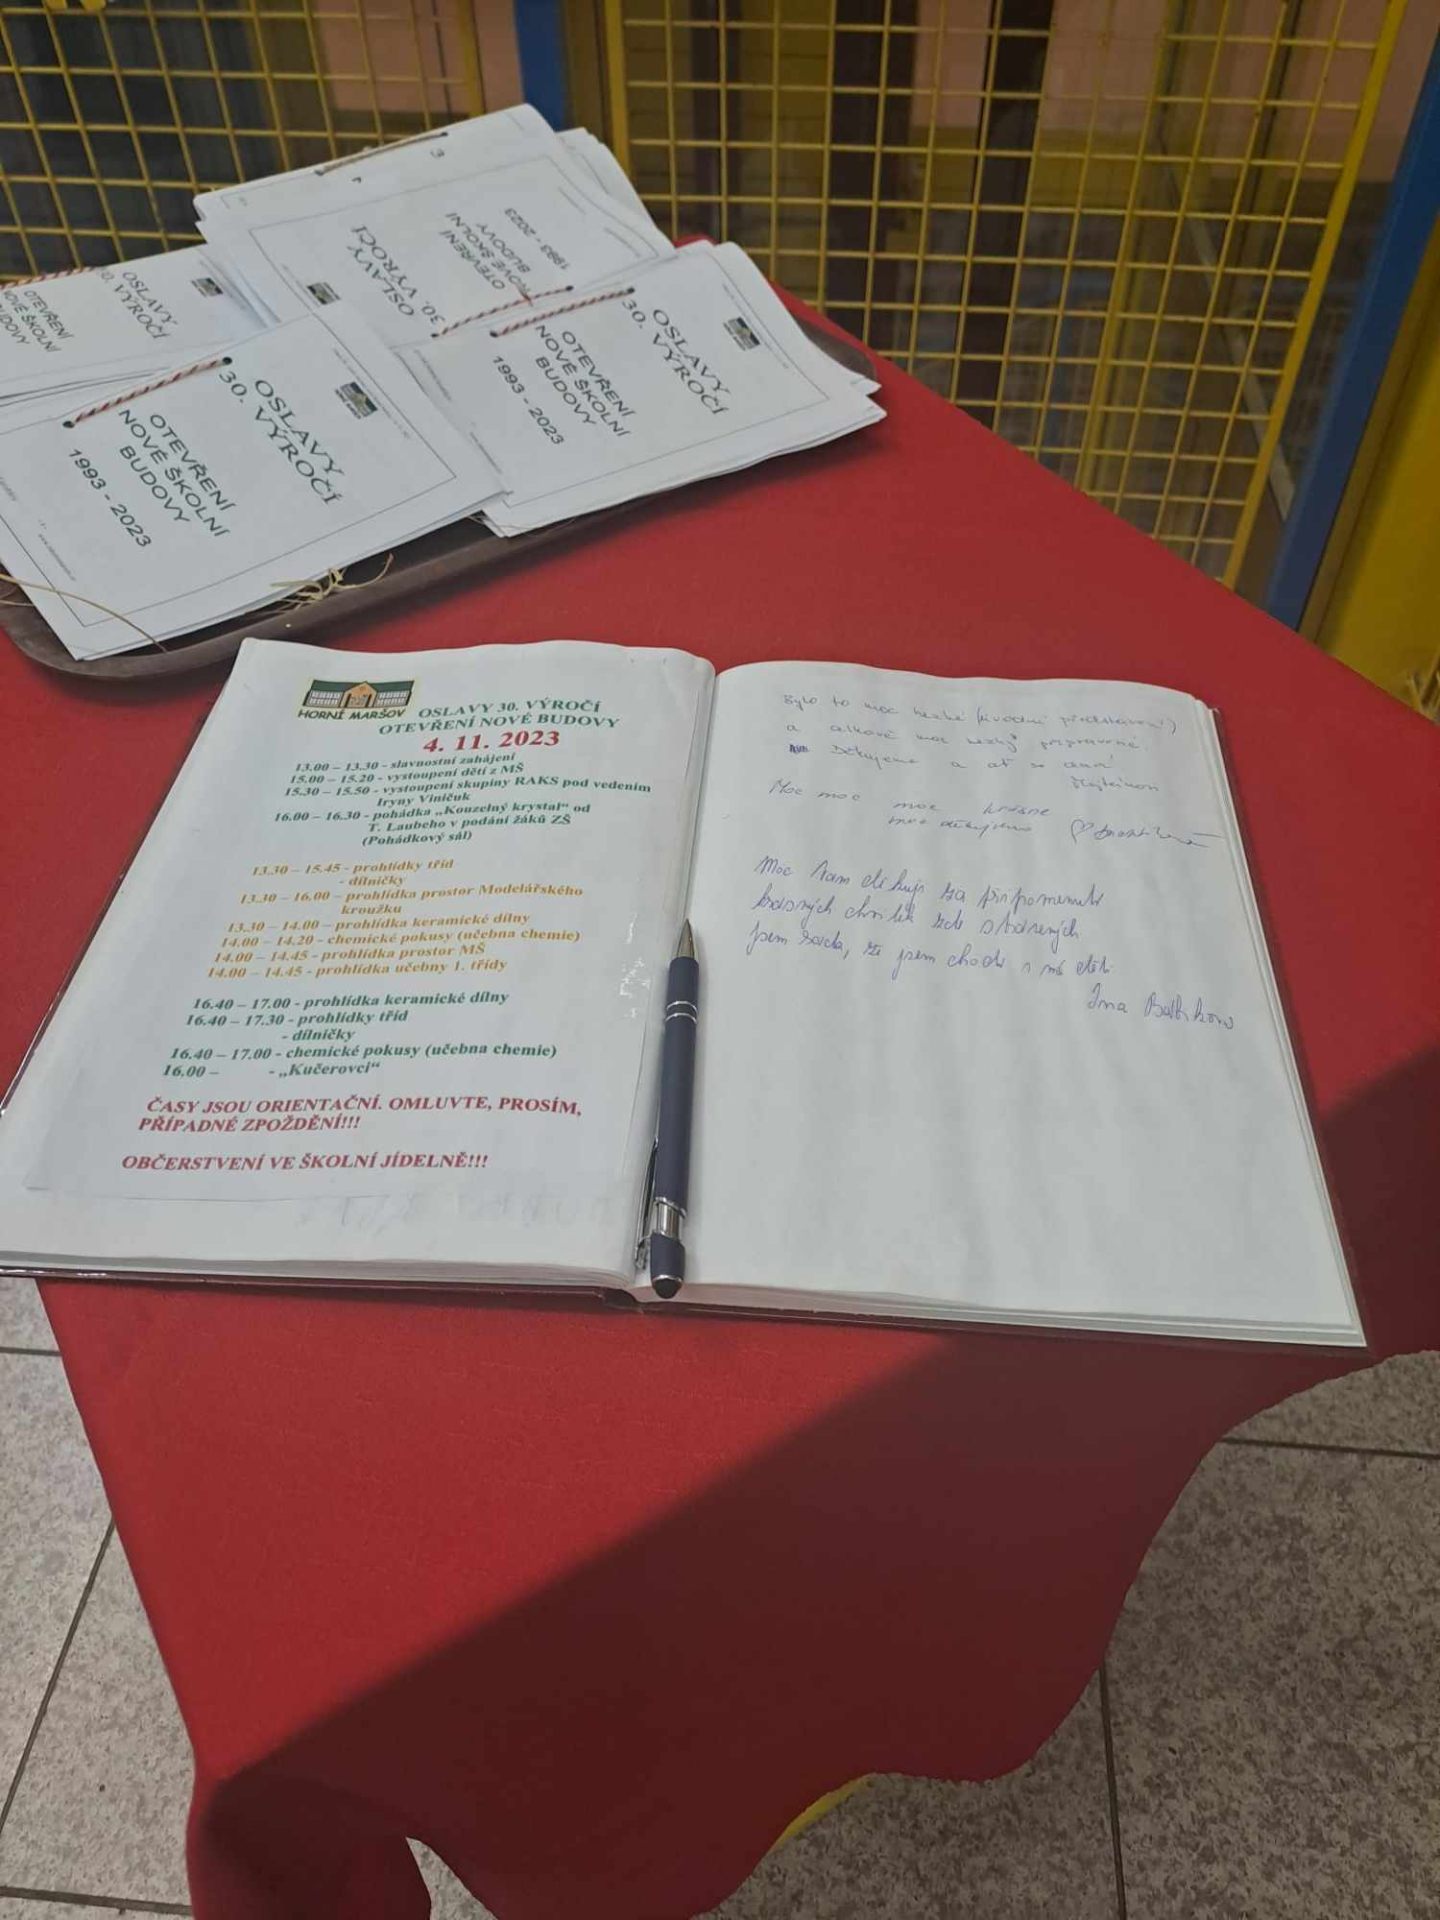 OSLAVY
30. VÝROČÍ
OTEVŘENÍ
NOVÉ ŠKOLNÍ
BUDOVY
1993 - 2023
OSLAVY
30. VÝROČÍ
OTEVŘENÍ
NOVÉ ŠKOLNÍ
BUDOVY
OSLAVY
30. VÝROČÍ
OTEVŘENÍ
NOVÉ ŠKOLNÍ
BUDOVY
1993 - 2023
OSLAVY
30. VÝROČÍ
OTEVŘENÍ
NOVÉ ŠKOLNÍ
BUDOVY
1993 - 2023
HORNÍ MARŠOV
OSLAVY 30. VÝROČÍ
OTEVŘENÍ NOVÉ BUDOVY
4. 11. 2023
13.00 – 13.30 - slavnostní zahájení
15.00 – 15.20 - vystoupení dětí z MŠ
15.30 – 15.50 - vystoupení skupiny RAKS pod vedením
Iryny Viničuk
16.00 – 16.30 - pohádka „Kouzelný krystal“ od
T. Laubeho v podání žáků ZŠ
(Pohádkový sál)
13.30 – 15.45 - prohlídky tříd
- dílničky
13.30 – 16.00 – prohlídka prostor Modelářského
kroužku
13.30 – 14.00 – prohlídka keramické dílny
14.00 – 14.20 – chemické pokusy (učebna chemie)
14.00 – 14.45 – prohlídka prostor MŠ
14.00 – 14.45 – prohlídka učebny 1. třídy
16.40 – 17.00 - prohlídka keramické dílny
16.40 – 17.30 - prohlídky tříd
- dílničky
16.40 – 17.00 - chemické pokusy (učebna chemie)
16.00 – - „Kučerovci“
ČASY JSOU ORIENTAČNÍ. OMLUVTE, PROSÍM,
PŘÍPADNÉ ZPOŽDĚNÍ!!!
OBČERSTVENÍ VE ŠKOLNÍ JÍDELNĚ!!!
Bylo to moc hezké (úvodní představení)
a celkově moc hezky připravené.
Děkujeme a ať se
Moc moc moc krásné
moc děkujeme
Moc Vám děkuji za připomenutí
krásných chvilek zde strávených
jsem ráda, že jsem chodila i mé děti